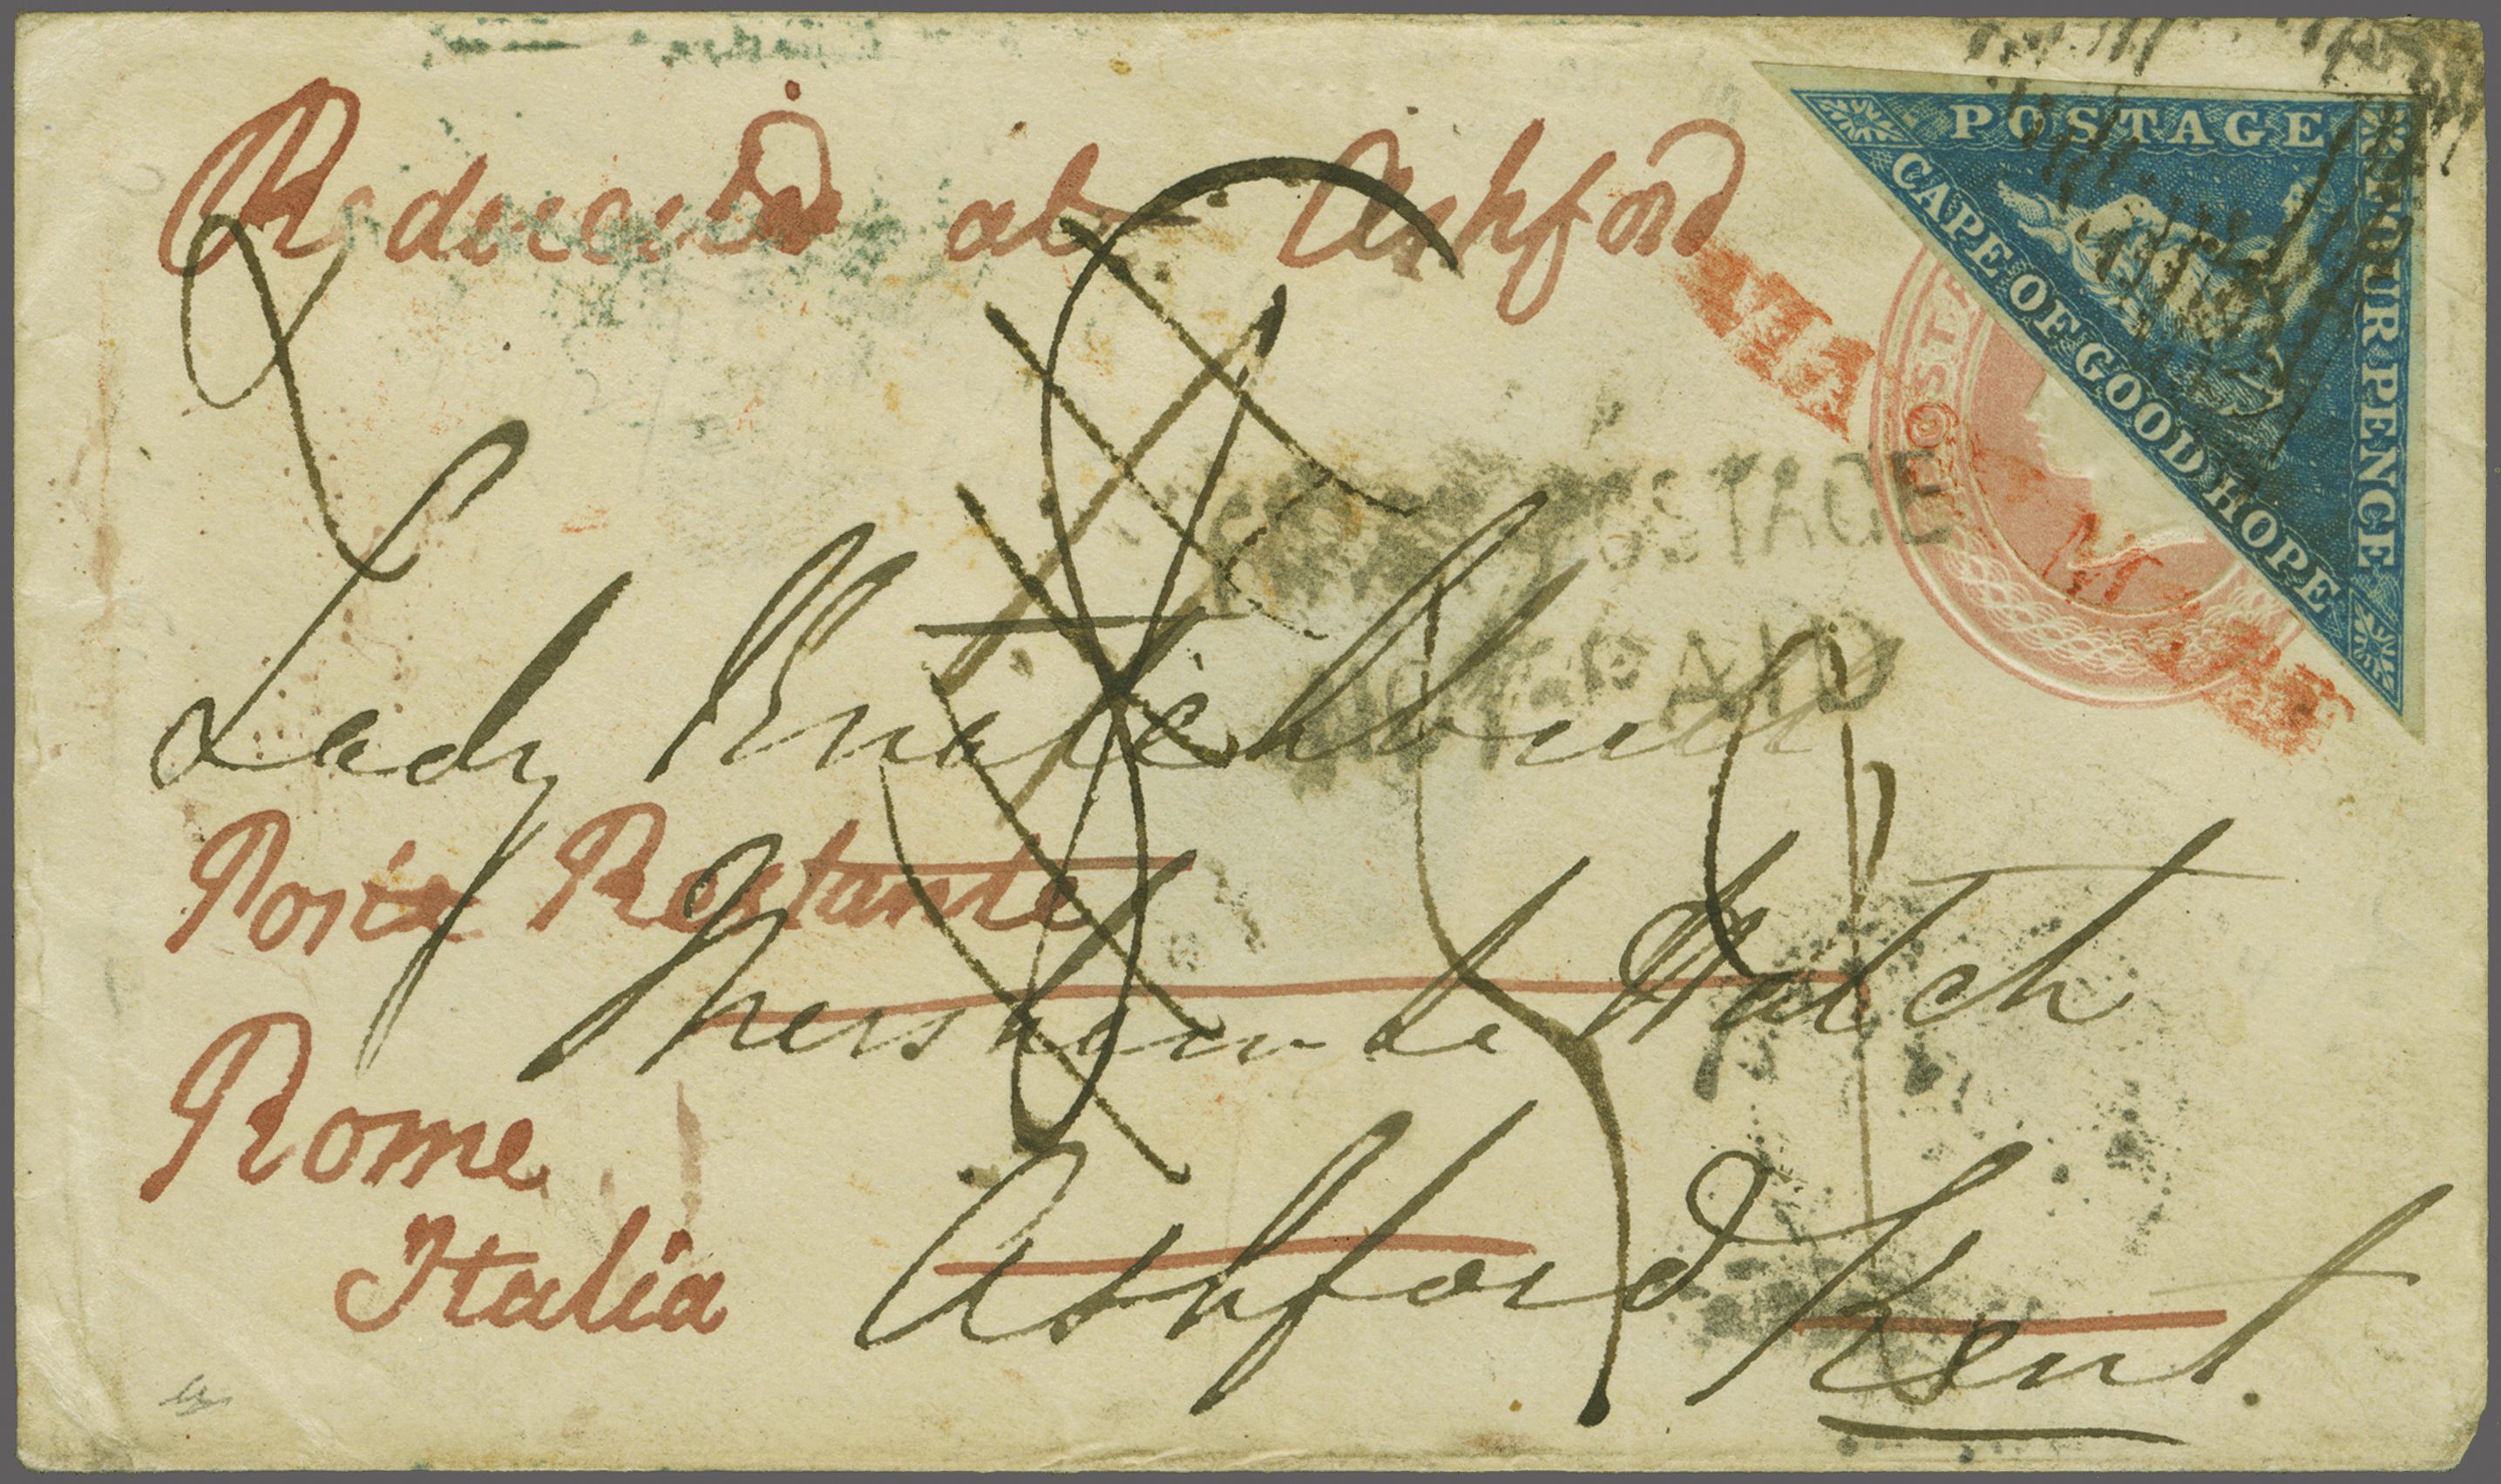 Redirected at Ashford
POSTAGE
FOUR PENCE
CAPE OF GOOD HOPE
POSTAGE
NOT PAID
Lady Knatchbull
Poste Restante
Mersham le Hatch
Rome
Italia
Ashford
Kent.